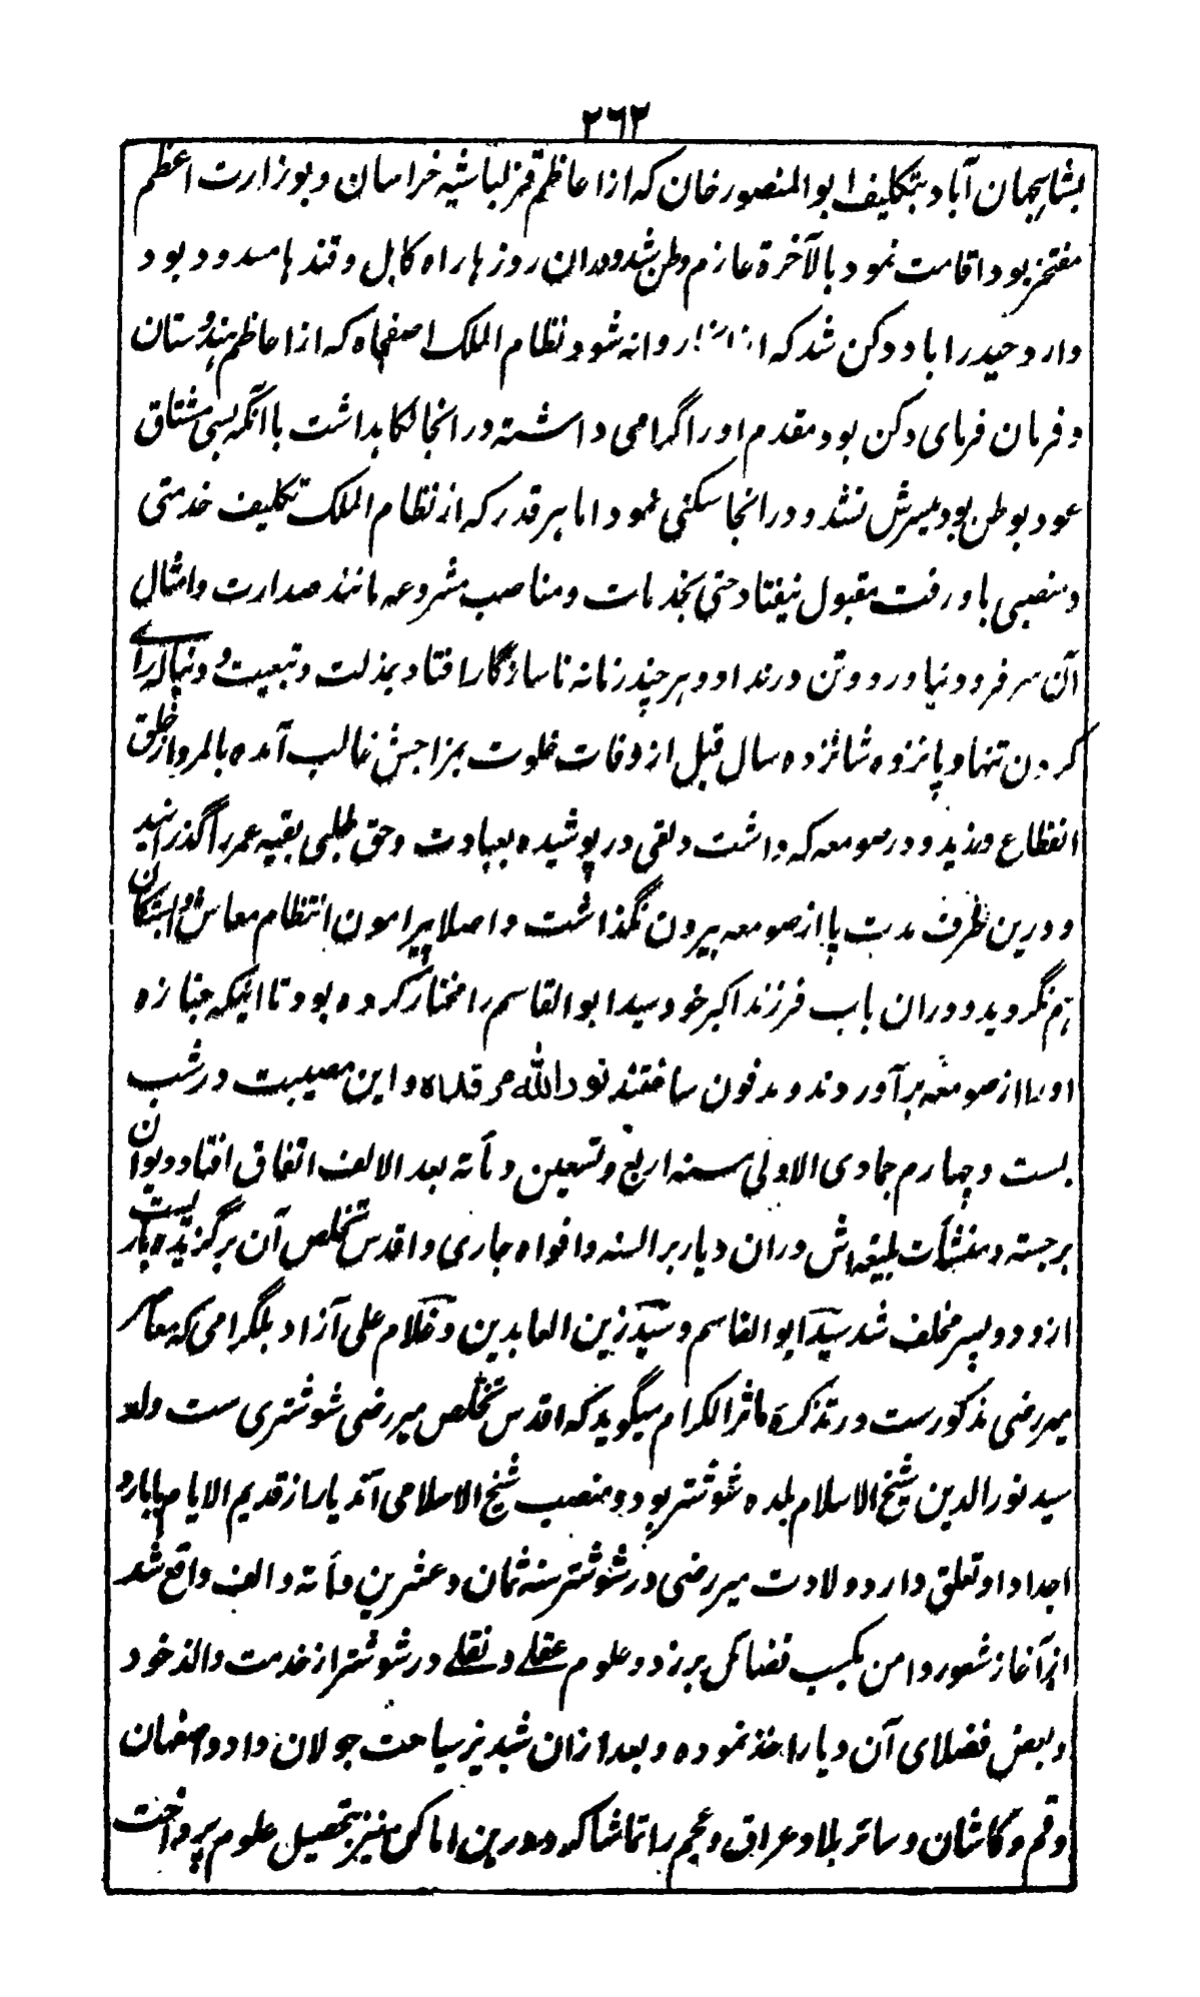 ۲۶۲
بشاہجہان آباد بتکلیف ابوالمنصور خان کہ از اعاظم قزلباشیہ خراسان و بوزارت اعظم
مفتخر بود اقامت نمود بالآخرة عازم وطن شد و دران روزہا راہ کابل و قندہا مسدود بود
وارد حیدراباد دکن شد کہ از روانہ شود نظام الملک اصفجاہ کہ از اعاظم ہندوستان
و فرمان فرمای دکن بود مقدم او را گرامی داشتہ در انجا نگاہداشت باآنکہ بسی مشتاق
عود بوطن بود میسرش نشد و در انجا سکنی نمود اما ہر قدر کہ از نظام الملک تکلیف خدمتی
و منصبی باو رفت مقبول نیفتاد حتی بخدمات و مناصب مشروعہ مانند صدارت و امثال
آن سر فرود نیاورد و تن در نداد و ہر چند زمانہ ناسازگار افتاد بمذلت و تبعیت و دنیا لہ رائے
کردن تنہا و پانزدہ شانزدہ سال قبل از وفات خلوت بمزاجش غالب آمدہ بالمرہ از خلق
انقطاع ورزید و در صومعہ کہ داشت دلقی در پوشیدہ بعبادت و حق طلبی بقیہ عمر را گذرانید
و درین ظرف مدت پا از صومعہ بیرون نگذاشت و اصلا پیرامون انتظام معاش
ہم نگردید و دران باب فرزند اکبر خود سید ابوالقاسم را مختار کردہ بود تا اینکہ جنازہ
او را از صومعہ برآوردند و مدفون ساختند نوراللہ مرقدہ و این مصیبت در شب
بست و چہارم جمادی الاولی سنہ اربع و تسعین و مأتہ بعد الالف اتفاق افتاد و دیوان
برجستہ و منشآت بلیغہ اش دران دیار بر السنہ و افواہ جاری و اقدس تخلص آن برگزیدہ باریست
ازو دو پسر مخلف شد سید ابوالقاسم و سید زین العابدین و غلام علی آزاد بلگرامی کہ معاصر
میر رضی مذکورست در تذکرہ مآثر الکرام میگوید کہ اقدس تخلص میر رضی شوشتری ست ولد
سید نورالدین شیخ الاسلام بلدہ شوشتر بود و منصب شیخ الاسلامی آندیار از قدیم الایام بابا و
اجداد او تعلق دارد ولادت میر رضی در شوشتر سنہ ثمان و عشرین و مأتہ و الف واقع شد
از آغاز شعور دامن بکسب فضائل بر زد و علوم عقلے و نقلے در شوشتر از خدمت والد خود
و بعض فضلای آن دیار اخذ نمودہ و بعد ازان شبدیز سیاحت جولان داد و اصفہان
و قم و کاشان و سائر بلاد عراق و عجم را تماشا کرد و درین اماکن نیز بتحصیل علوم پرداخت